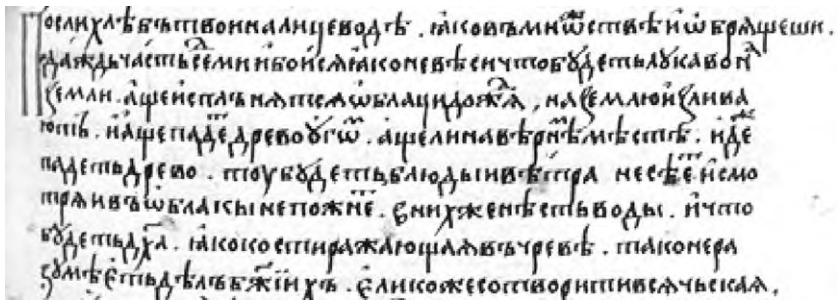 Посли хлѣбъ твои на лице водѣ . ꙗко въ мнѡ҃ествѣ и҆ ѡ҆брѧщеши .
даждь часть се҃ми и҆ бои сѧ ꙗко не вѣси что бꙋдеть лꙋкаво н҃а
ꙁемли . а҆ще и҆сплънѧтсѧ ѡ҆блаци дожд҃ѧ , на ꙁемлю и҆ꙁлива
ютъ . и҆ аще паде҃ древо ꙋгѡ҃ . аще ли на вѣрн҃ѣ мѣстѣ . иде҃
падеть древо . тоу бꙋдеть, блюдыи вѣтра не сѣе҃ть . и҆ смо
трѧи въ ѡ҆блакы не пожне҃ . в них же нѣсть воды . и҆ что
бꙋдеть дх҃а . ꙗко кости ражающаѧ въ чревѣ . тако не ра
ꙁꙋмѣеть дѣлъ бж҃їихъ . є҆лико же сотворити всѧчьскаꙗ .